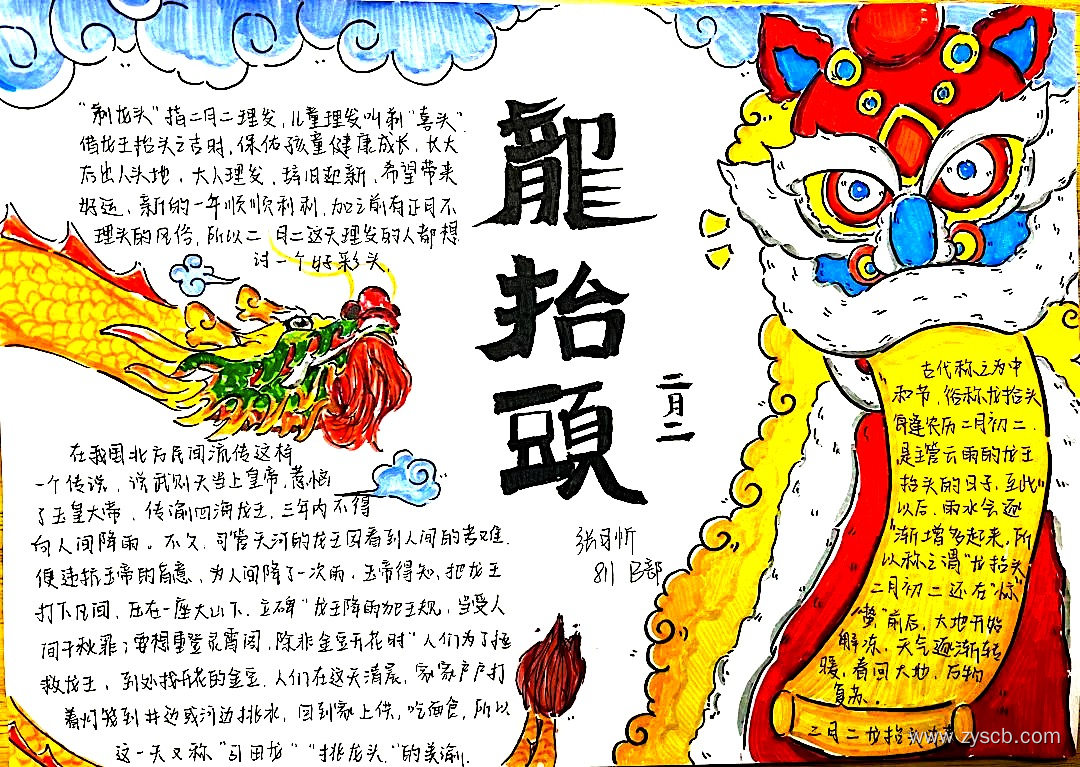 "剃龙头"指二月二理发，儿童理发叫剃"喜头"
借龙王抬头之吉时，保佑孩童健康成长，长大
后出人头地，大人理发，辞旧迎新，希望带来
好运，新的一年顺顺利利，加之前有正月不
理头的风俗，所以二月二这天理发的人都想
讨一个好彩头。
龍抬頭
二月二
张习忻
81 B部
在我国北方民间流传这样
一个传说，说武则天当上皇帝，惹恼
了玉皇大帝，传谕四海龙王，三年内不得
向人间降雨。不久，司管天河的龙王因看到人间的苦难，
便违抗玉帝的旨意，为人间降了一次雨，玉帝得知，把龙王
打下凡间，压在一座大山下，立碑"龙王降雨犯王规，当受人
间千秋罪；要想重登灵霄阁，除非金豆开花时"人们为了拯
救龙王，到处找开花的金豆，人们在这天清晨，家家户户打
着灯笼到井边或河边挑水，回到家上供，吃面食，所以
这一天又称"引田龙""挑龙头"的美谕．
古代称之为中
和节，俗称龙抬头
每逢农历二月初二，
是主管云雨的龙王
抬头的日子，至此
以后，雨水会逐
渐增多起来，所
以称之谓"龙抬头"
二月初二还在"惊
蛰"前后，大地开始
解冻，天气逐渐转
暖，春回大地，万物
复苏。
二月二龙抬头
www.zyscb.com